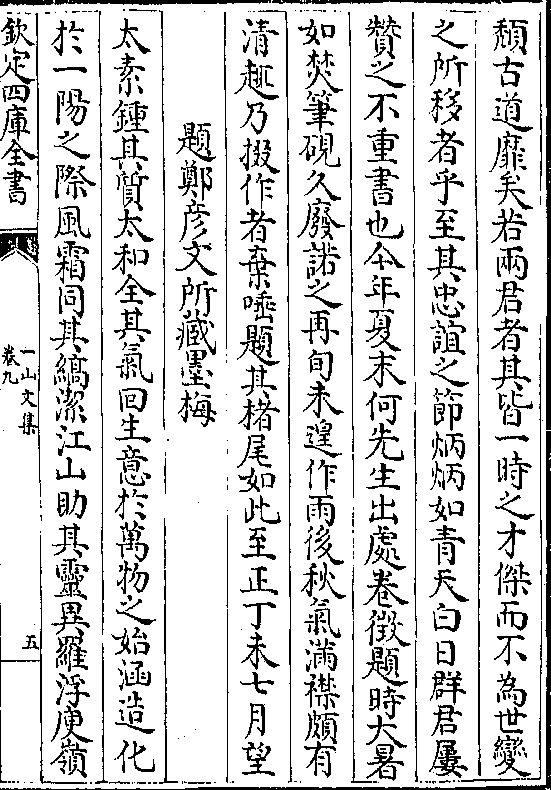 頽古道靡矣若兩君者其皆一時之才傑而不為世變
之所移者乎至其忠誼之節炳炳如青天白日群君屢
贊之不重書也今年夏末何先生出處卷徵題時大暑
如焚筆硯久廢諾之再旬未遑作雨後秋氣滿襟頗有
清趣乃掇作者棄唾題其楮尾如此至正丁未七月望
題鄭彦文所藏墨梅
太素鍾其質太和全其氣回生意於萬物之始涵造化
於一陽之際風霜同其縞潔江山助其靈異羅浮庾嶺
欽定四庫全書
一山文集
卷九
五